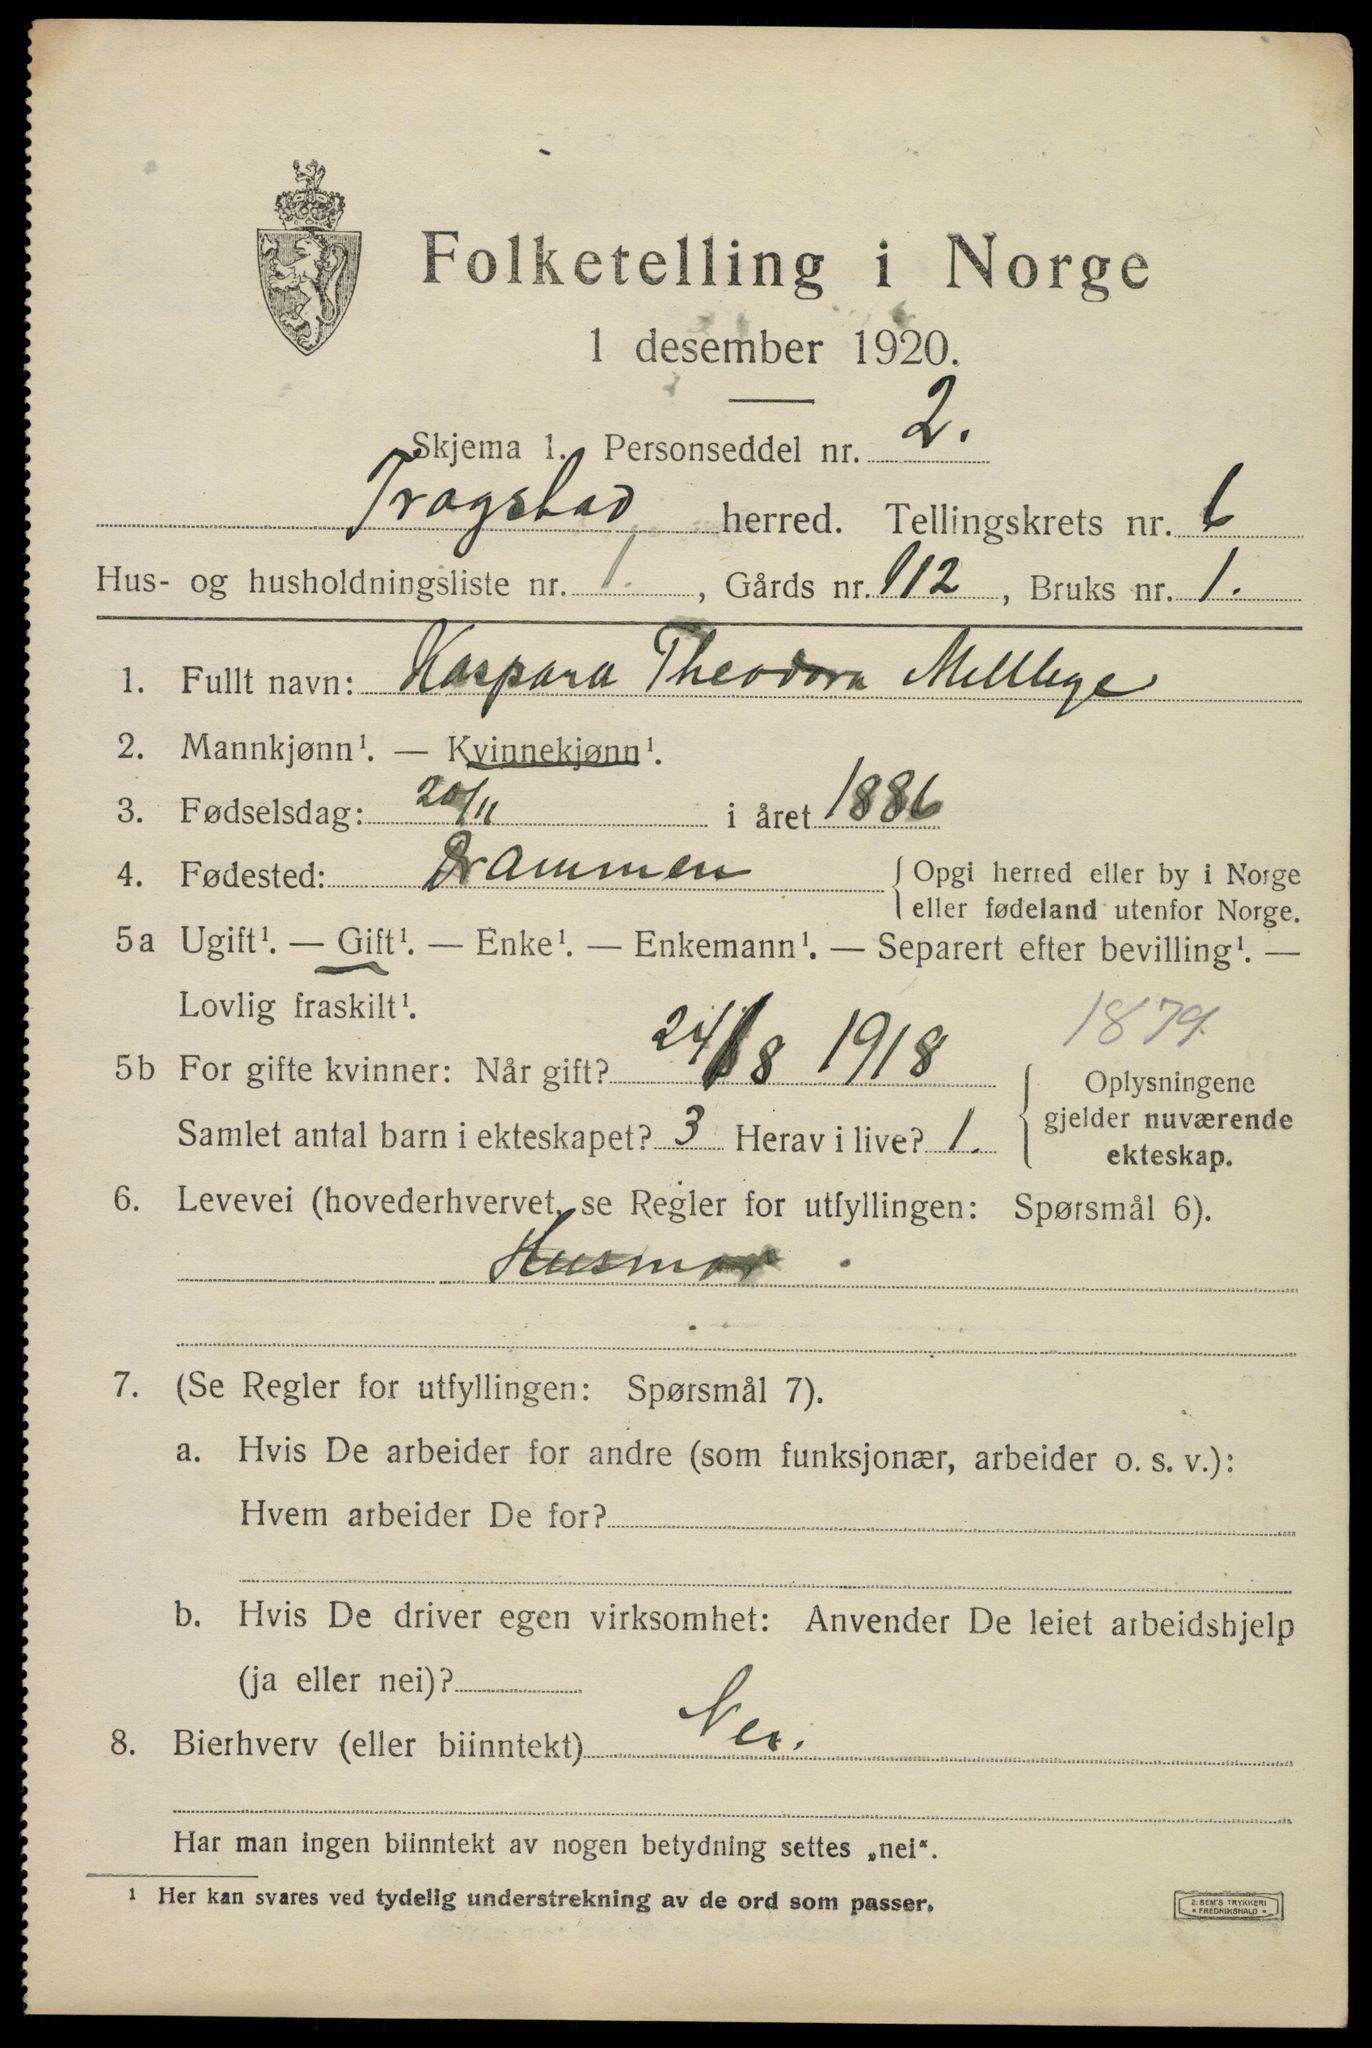 Folketelling i Norge
1 desember 1920.
Skjema 1. Personseddel nr. 2.
Trøgstad herred. Tellingskrets nr. 6
Hus- og husholdningsliste nr. 1. , Gårds nr. 112 , Bruks nr. 1.
1. Fullt navn: Kaspara Theodora
2. Mannkjønn¹. — Kvinnekjønn¹.
3. Fødselsdag: 20/11 i året 1886
4. Fødested: Drammen { Opgi herred eller by i Norge
eller fødeland utenfor Norge.
5a Ugift¹. — Gift¹. — Enke¹. — Enkemann¹. — Separert efter bevilling¹. —
Lovlig fraskilt¹.
1879.
5b For gifte kvinner: Når gift? 24/8 1918
Samlet antal barn i ekteskapet? 3 Herav i live? 1.
{ Oplysningene
gjelder nuværende
ekteskap.
6. Levevei (hovederhvervet, se Regler for utfyllingen: Spørsmål 6).
Husmor.
7. (Se Regler for utfyllingen: Spørsmål 7).
a. Hvis De arbeider for andre (som funksjonær, arbeider o. s. v.):
Hvem arbeider De for?
b. Hvis De driver egen virksomhet: Anvender De leiet arbeidshjelp
(ja eller nei)?
8. Bierhverv (eller biinntekt) Nei.
Har man ingen biinntekt av nogen betydning settes „nei“.
¹ Her kan svares ved tydelig understrekning av de ord som passer.
E. SEM'S TRYKKERI
* FREDRIKSHALD *